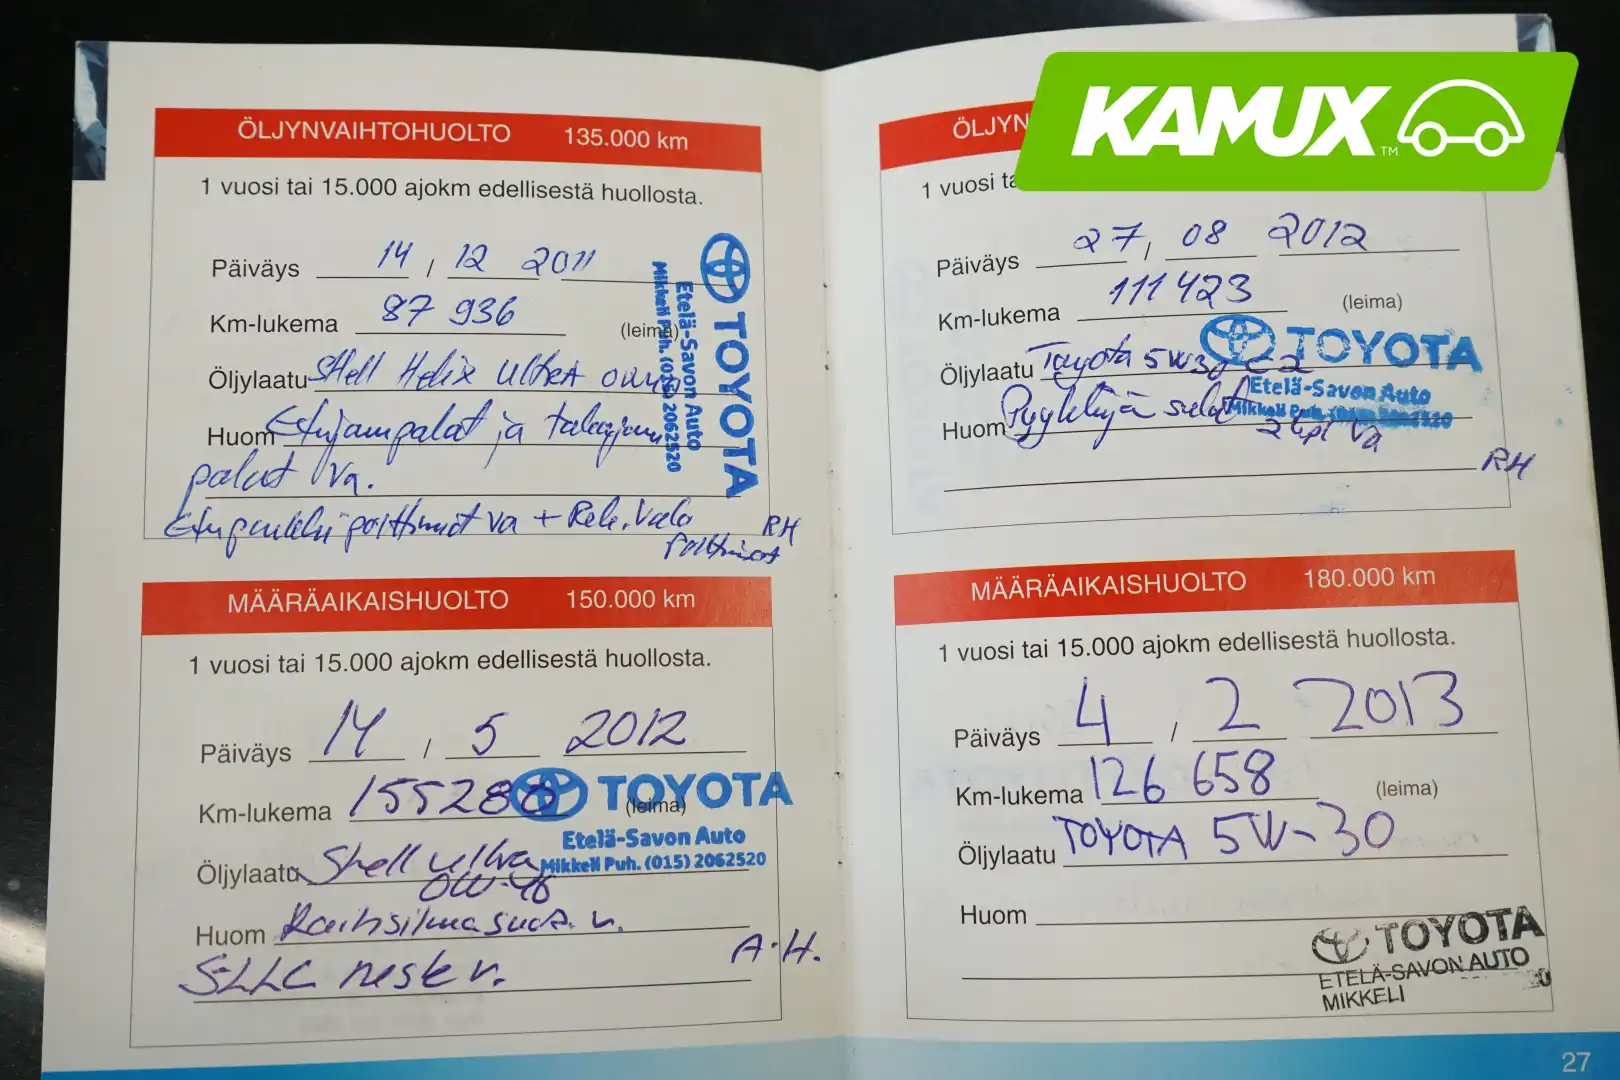 KAMUX™
ÖLJYNVAIHTOHUOLTO 135.000 km
1 vuosi tai 15.000 ajokm edellisestä huollosta.
Päiväys 14 / 12 2011
Km-lukema 87 936 (leima)
Öljylaatu Shell Helix Ultra
Huom Etujarrupalat ja takajarru
palat va.
Etupenkki polttimot va + Rek. valo
polttimot
RH
TOYOTA
Etelä-Savon Auto
Mikkeli Puh. (015) 2062520
MÄÄRÄAIKAISHUOLTO 150.000 km
1 vuosi tai 15.000 ajokm edellisestä huollosta.
Päiväys 14 / 5 2012
Km-lukema 155280 (leima)
Öljylaatu Shell ultra
0W-40
Huom Raitisilmasuod. v.
S-LLC nest v.
A.H.
TOYOTA
Etelä-Savon Auto
Mikkeli Puh. (015) 2062520
ÖLJYN
1 vuosi ta
Päiväys 27 / 08 2012
Km-lukema 111423 (leima)
Öljylaatu Toyota 5W30 C2
Huom Pyyhkijä sulat
2 kpl va
RH
TOYOTA
Etelä-Savon Auto
Mikkeli Puh.
MÄÄRÄAIKAISHUOLTO 180.000 km
1 vuosi tai 15.000 ajokm edellisestä huollosta.
Päiväys 4 / 2 2013
Km-lukema 126 658 (leima)
Öljylaatu TOYOTA 5W-30
Huom
TOYOTA
ETELÄ-SAVON AUTO
MIKKELI
27